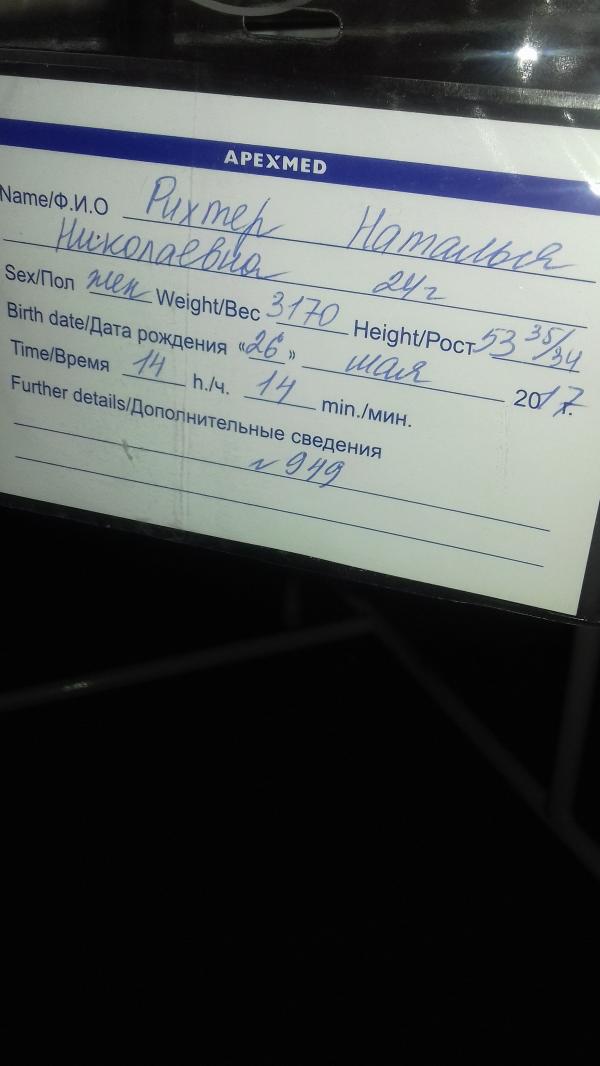 APEXMED
Name/Ф.И.О Рихтер Наталья
Николаевна 24г
Sex/Пол жен Weight/Вес 3170 Height/Рост 53 35/34
Birth date/Дата рождения «26» мая 2017г.
Time/Время 14 h./ч. 14 min./мин.
Further details/Дополнительные сведения
~ 949